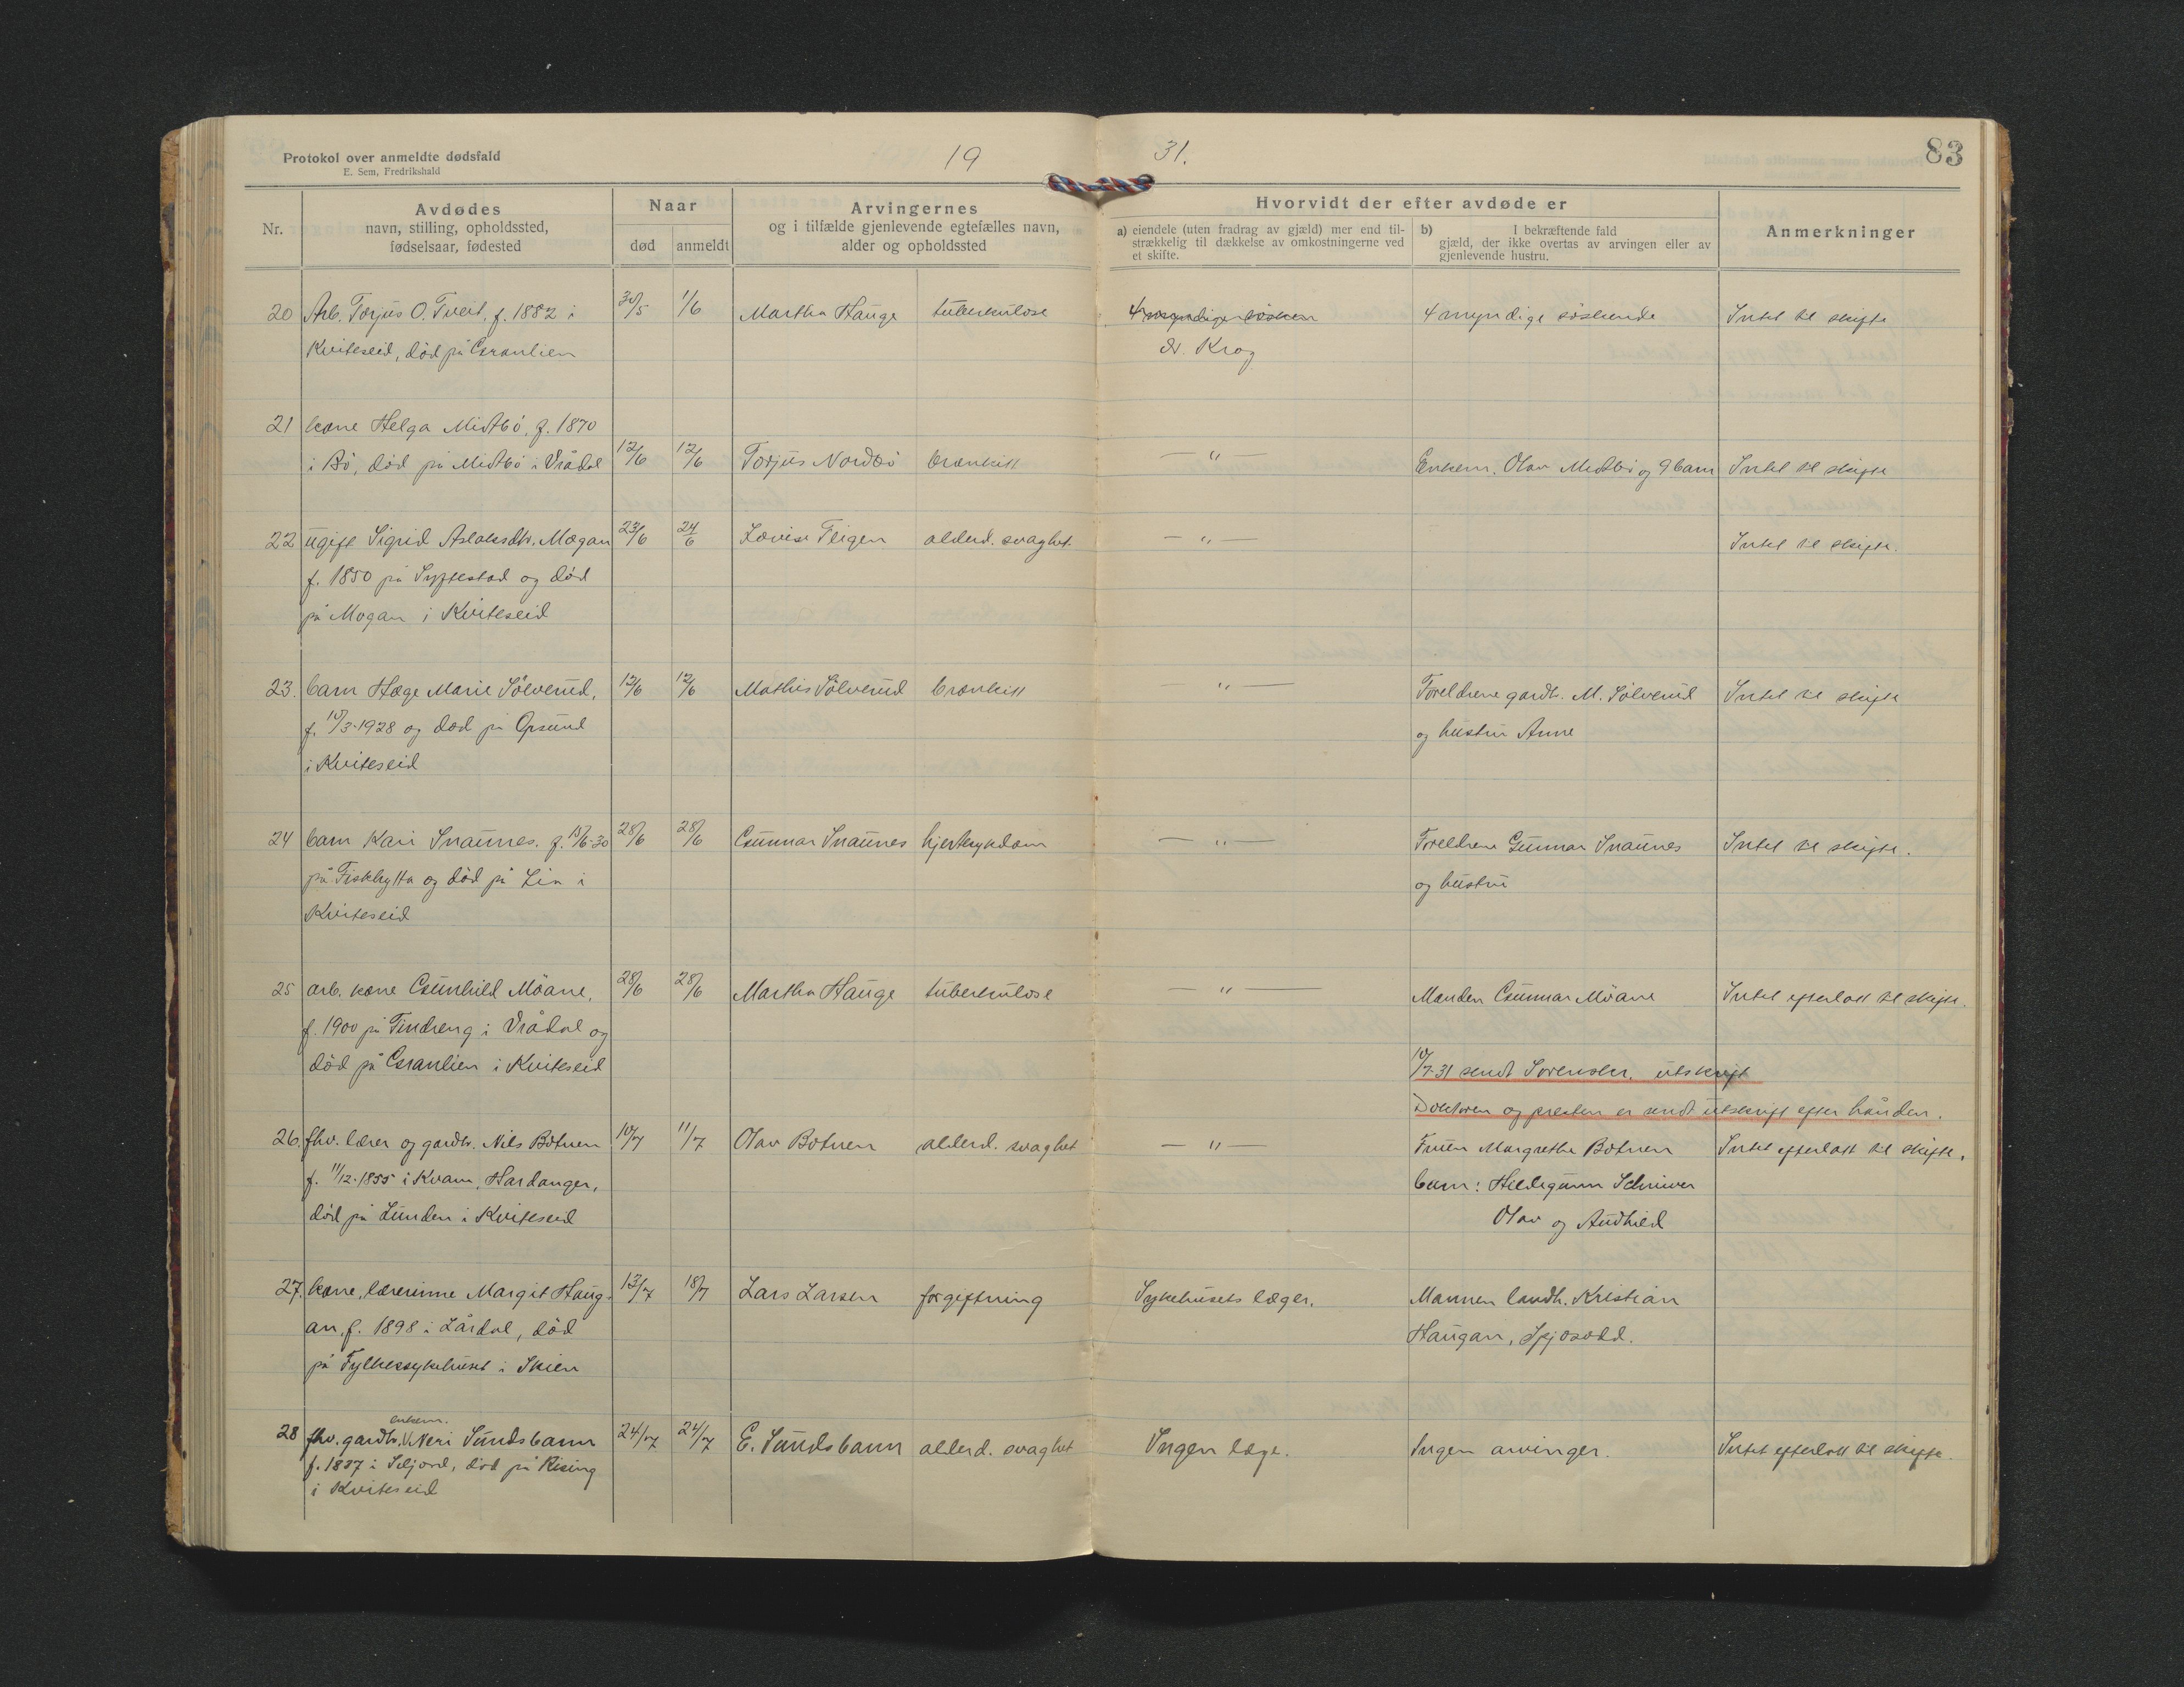 Protokol over anmeldte dødsfald
E. Sem, Fredrikshald
19
31.
83
Nr.
Avdødes
navn, stilling, opholdssted,
fødselsaar, fødested
Naar
død
anmeldt
Arvingernes
og i tilfælde gjenlevende egtefælles navn,
alder og opholdssted
Hvorvidt der efter avdøde er
a) eiendele (uten fradrag av gjæld) mer end til-
strækkelig til dækkelse av omkostningerne ved
et skifte.
b) I bekræftende fald
gjæld, der ikke overtas av arvingen eller av
gjenlevende hustru.
Anmerkninger
20 Arb. Torjus O. Tveit, f. 1882 i 30/5 1/6 Martha Hauge tuberkulose 4 myndige søsken 4 myndige søskende Intet til skifte
Kviteseid, død på Granlien dr. Krog
21 kone Helga Midtbø, f. 1870
i Bø, død på Midtbø i Vrådal 12/6 12/6 Torjus Nordbø bronkitt — " — Enkem. Olav Midtbø og 9 barn Intet til skifte
22 ugift Sigrid Aslaksdtr. Mogan 23/6 24/6 Lovise Fligen alderd. svaghet. — " — Intet til skifte.
f. 1850 på Syftestad og død
på Mogan i Kviteseid
23. barn Hæge Marie Sølverud, 12/6 12/6 Mathis Sølverud bronkitt — " — Foreldrene gardb. M. Sølverud Intet til skifte
f. 10/3-1928 og død på Opsund og hustru Anne
i Kviteseid
24 barn Kari Snaunes. f. 15/6-30 28/6 28/6 Gunnar Snaunes hjertesykdom — " — Foreldrene Gunnar Snaunes Intet til skifte.
på Fiskhytta og død på Lia i og hustru
Kviteseid
25 arb. kone Gunhild Moane, 28/6 28/6 Martha Hauge tuberkulose — " — Manden Gunnar Moane Intet efterlatt til skifte.
f. 1900 på Tindreng i Vrådal og
død på Granlien i Kviteseid 10/7-31 sendt Sorenskr. utskrift
Doktoren og presten er sendt utskrift efter hånden.
26. fhv. lærer og gardb. Nils Botnen 10/7 11/7 Olav Botnen alderd. svaghet — " — Fruen Margrethe Botnen Intet efterlatt til skifte.
f. 11/12-1855 i Kvam, Hardanger, barn: Hildegunn Schriwer
død på Lunden i Kviteseid Olav og Audhild
27. kone, lærerinne Margit Haug- 13/7 18/7 Lars Larsen forgiftning Sykehusets læger. Mannen landh. Kristian
an, f. 1898 i Lårdal, død Haugan, Spjosodd.
på Fylkessykehuset i Skien
enkem.
28 fhv. gardb. V. Neri Sundsbarm 24/7 24/7 E. Sundsbarm alderd. svaghet Ingen læge. Ingen arvinger. Intet efterlatt til skifte.
f. 1837 i Seljord, død på Rising
i Kviteseid